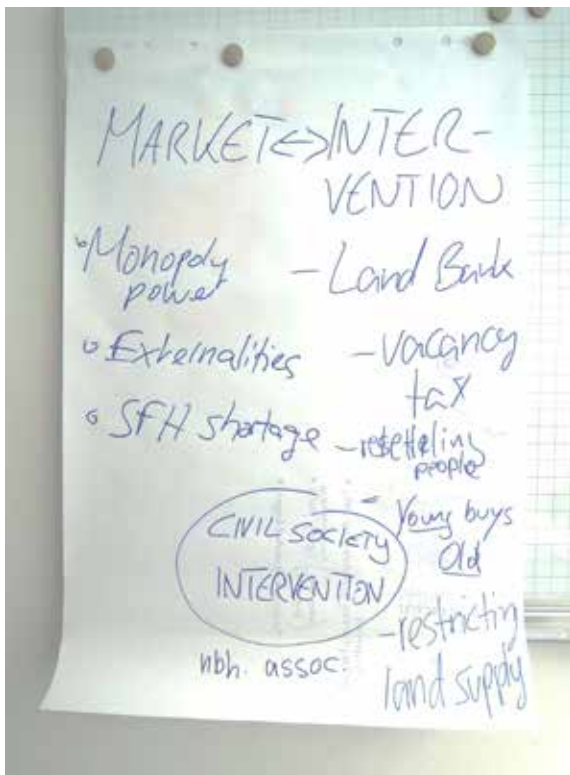 MARKET<->INTER-
VENTION
Monopoly
power
Externalities
SFH shortage
- Land Bank
- vacancy
tax
- resettling
people
- Young buys
Old
- restricting
land supply
CIVIL SOCIETY
INTERVENTION
nbh. assoc.